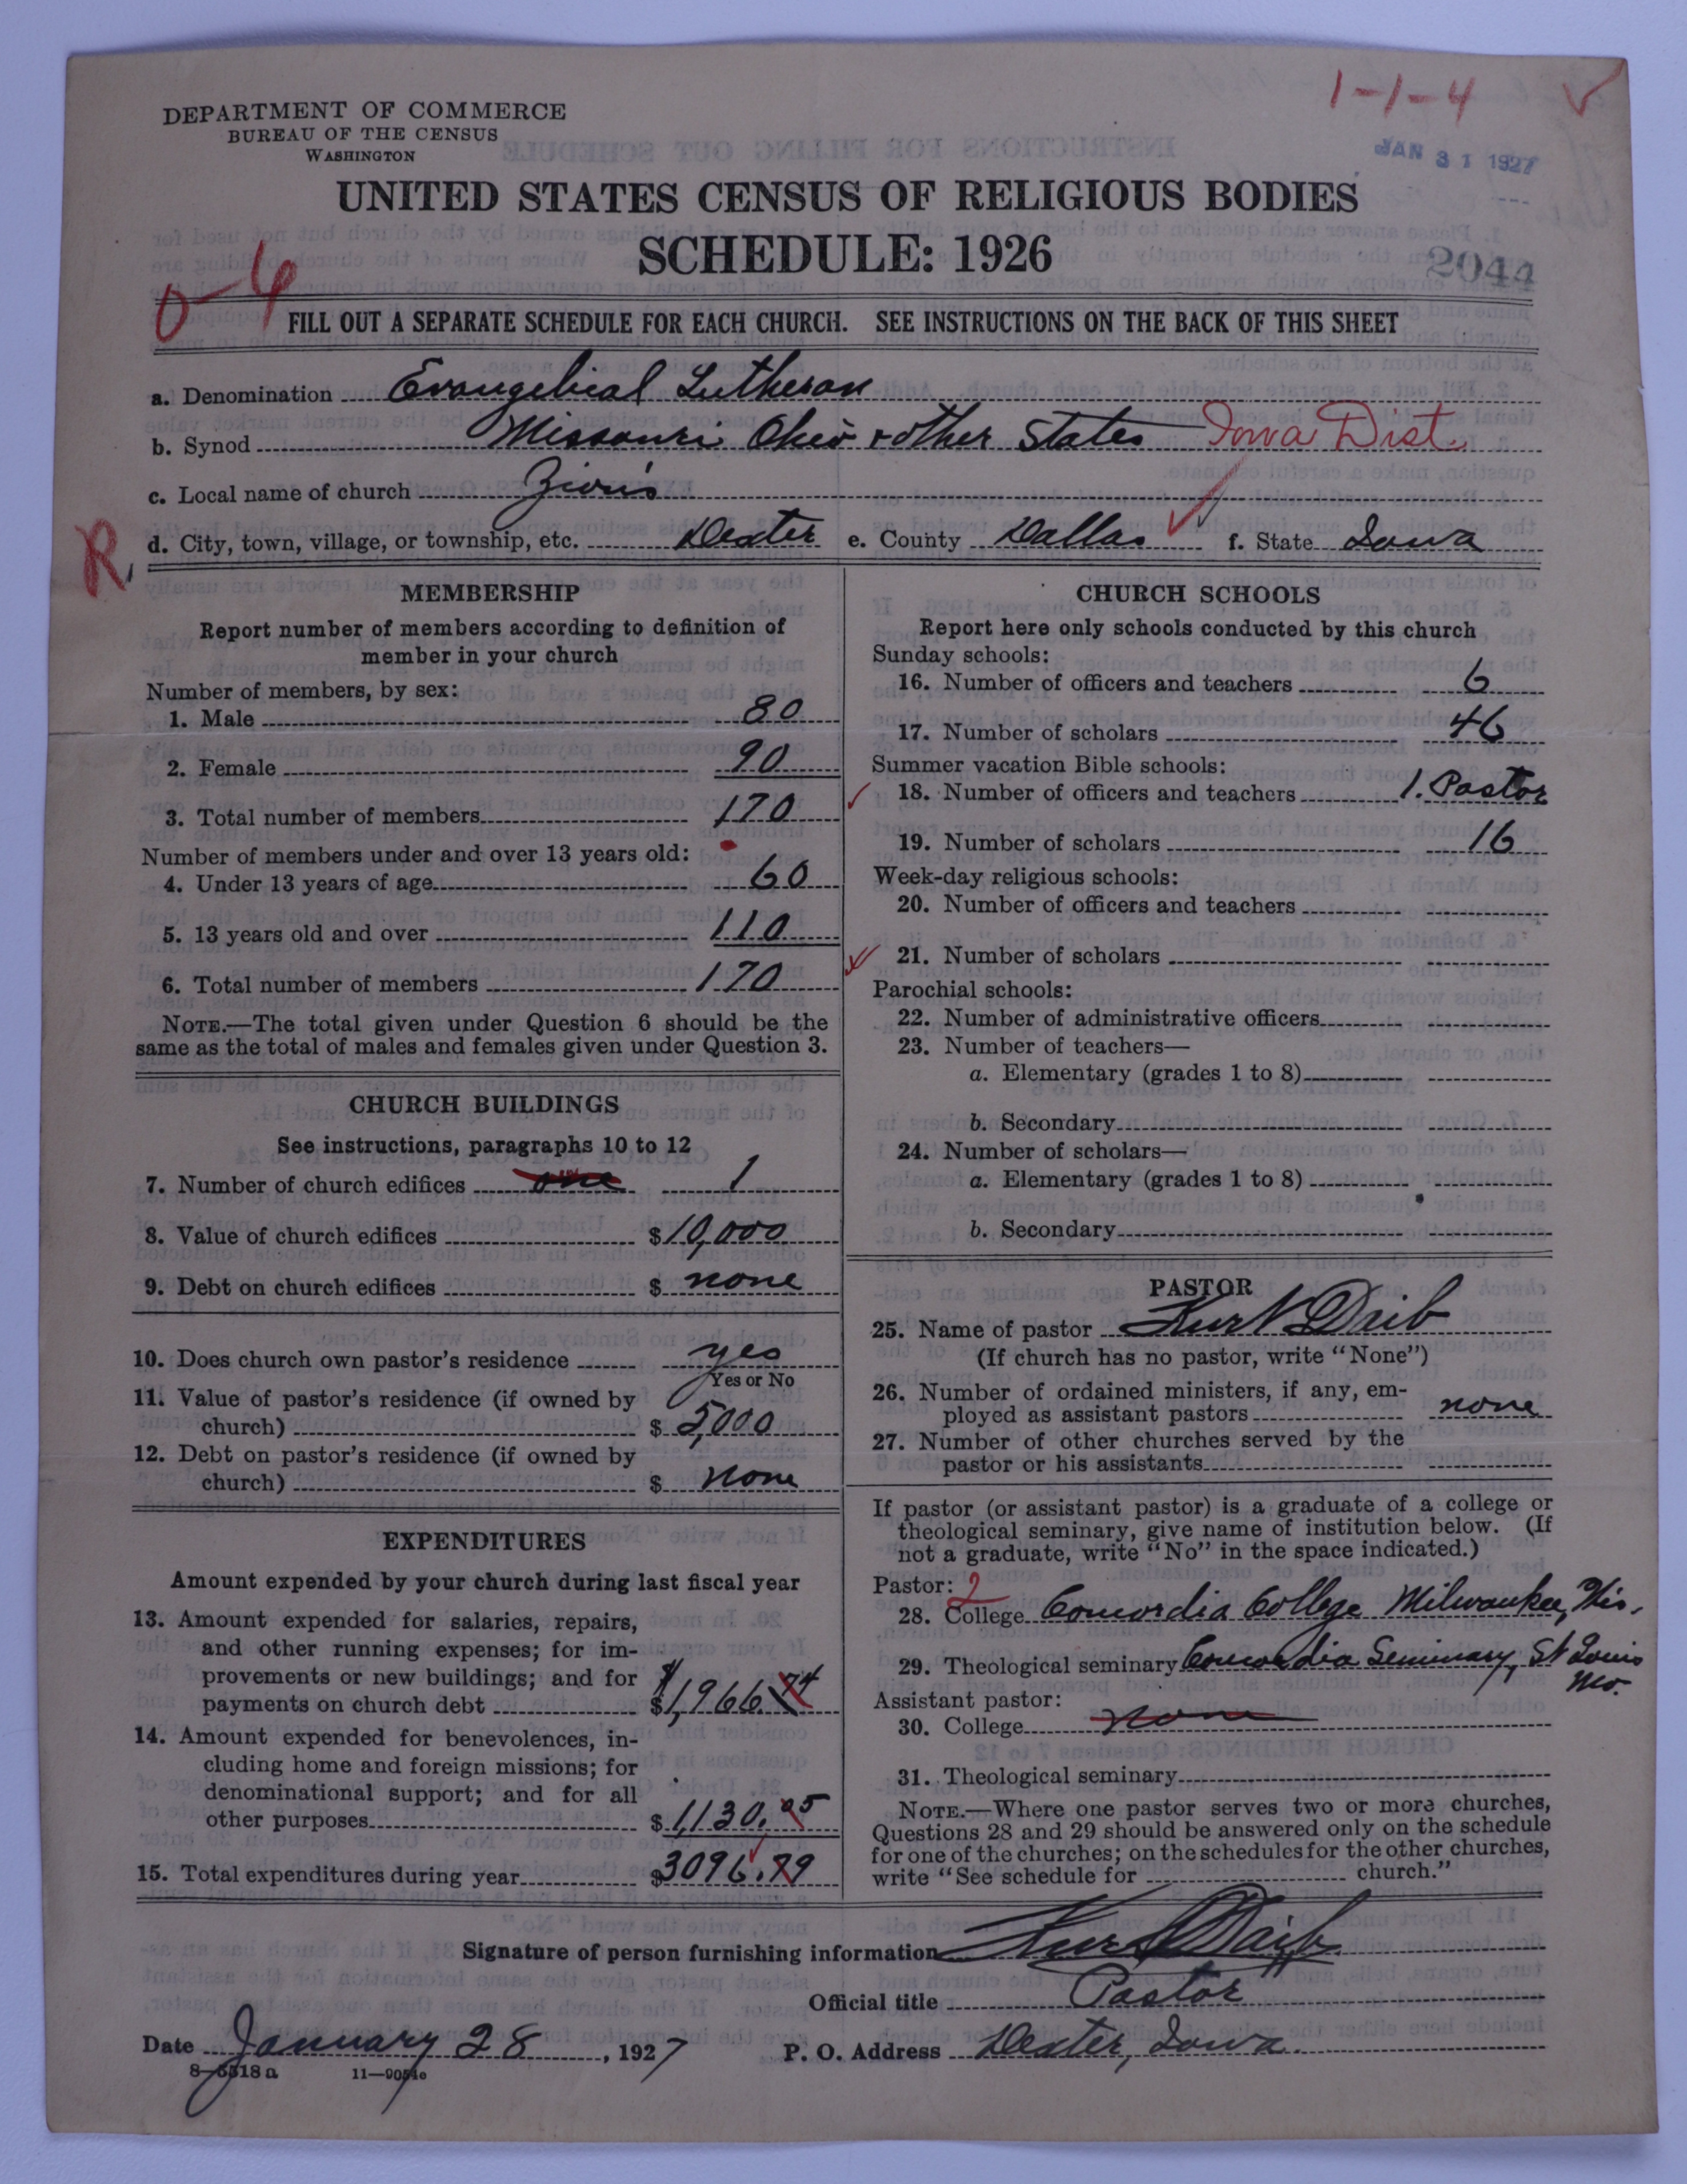 1-1-4
DEPARTMENT OF COMMERCE
BUREAU OF THE CENSUS
WASHINGTON
JAN 31 1927
UNITED STATES CENSUS OF RELIGIOUS BODIES
SCHEDULE: 1926
2044
0-6
FILL OUT A SEPARATE SCHEDULE FOR EACH CHURCH. SEE INSTRUCTIONS ON THE BACK OF THIS SHEET
a. Denomination Evangelical Lutheran
b. Synod Missouri Ohio + other States Iowa Dist.
c. Local name of church Zion's
R,
d. City, town, village, or township, etc. Dexter e. County Dallas f. State Iowa
MEMBERSHIP
Report number of members according to definition of
member in your church
Number of members, by sex:
1. Male 80
2. Female 90
3. Total number of members 170
Number of members under and over 13 years old:
4. Under 13 years of age 60
5. 13 years old and over 110
6. Total number of members 170
NOTE.—The total given under Question 6 should be the
same as the total of males and females given under Question 3.
CHURCH BUILDINGS
See instructions, paragraphs 10 to 12
7. Number of church edifices one 1
8. Value of church edifices $10,000
9. Debt on church edifices $ none
10. Does church own pastor's residence yes
Yes or No
11. Value of pastor's residence (if owned by
church) $ 5,000
12. Debt on pastor's residence (if owned by
church) $ none
EXPENDITURES
Amount expended by your church during last fiscal year
13. Amount expended for salaries, repairs,
and other running expenses; for im-
provements or new buildings; and for
payments on church debt $1,966.74
14. Amount expended for benevolences, in-
cluding home and foreign missions; for
denominational support; and for all
other purposes $1,130.05
15. Total expenditures during year $3096.79
CHURCH SCHOOLS
Report here only schools conducted by this church
Sunday schools:
16. Number of officers and teachers 6
17. Number of scholars 46
Summer vacation Bible schools:
18. Number of officers and teachers 1. Pastor
19. Number of scholars 16
Week-day religious schools:
20. Number of officers and teachers
21. Number of scholars
Parochial schools:
22. Number of administrative officers
23. Number of teachers—
a. Elementary (grades 1 to 8)
b. Secondary
24. Number of scholars—
a. Elementary (grades 1 to 8)
b. Secondary
PASTOR
25. Name of pastor Kurt Daib
(If church has no pastor, write "None")
26. Number of ordained ministers, if any, em-
ployed as assistant pastors none
27. Number of other churches served by the
pastor or his assistants
If pastor (or assistant pastor) is a graduate of a college or
theological seminary, give name of institution below. (If
not a graduate, write "No" in the space indicated.)
Pastor: 2
28. College Concordia College Milwaukee, Wis.
29. Theological seminary Concordia Seminary, St Louis
Mo.
Assistant pastor:
30. College none
31. Theological seminary
NOTE.—Where one pastor serves two or more churches,
Questions 28 and 29 should be answered only on the schedule
for one of the churches; on the schedules for the other churches,
write "See schedule for church."
Signature of person furnishing information Kurt Daib
Official title Pastor
Date January 28, 1927 P. O. Address Dexter, Iowa.
8-5518a 11-9054c